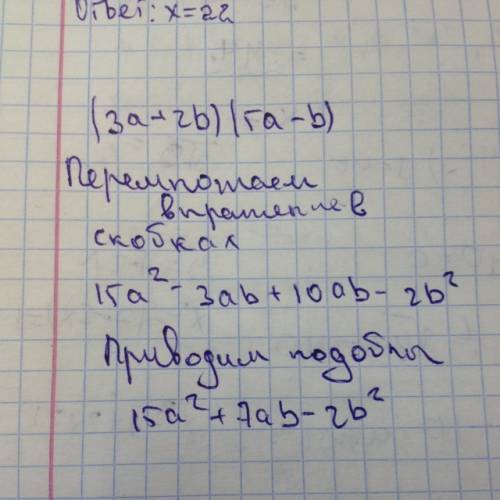 Ответ: x=22
(3a+2b)(5a-b)
Перемножаем
выражение в
скобках
15a²-3ab+10ab-2b²
Приводим подобны
15a²+7ab-2b²